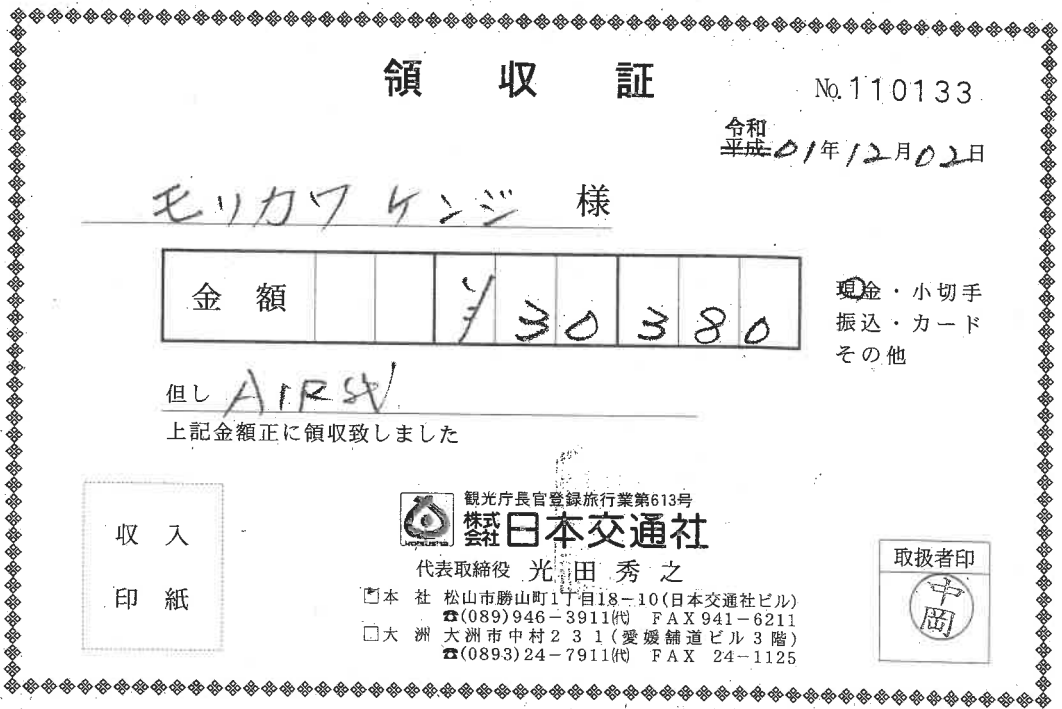 領収証
No.110133
令和
平成 01年12月02日
モリカワ ケンジ 様
金額 ¥30380
現金・小切手
振込・カード
その他
但し AIR代
上記金額正に領収致しました
収入
印紙
観光庁長官登録旅行業第613号
株式会社 日本交通社
代表取締役 光田秀之
本社 松山市勝山町1丁目18-10(日本交通社ビル)
☎(089)946-3911㈹ FAX 941-6211
□大洲 大洲市中村231(愛媛舗道ビル3階)
☎(0893)24-7911㈹ FAX 24-1125
取扱者印
中岡